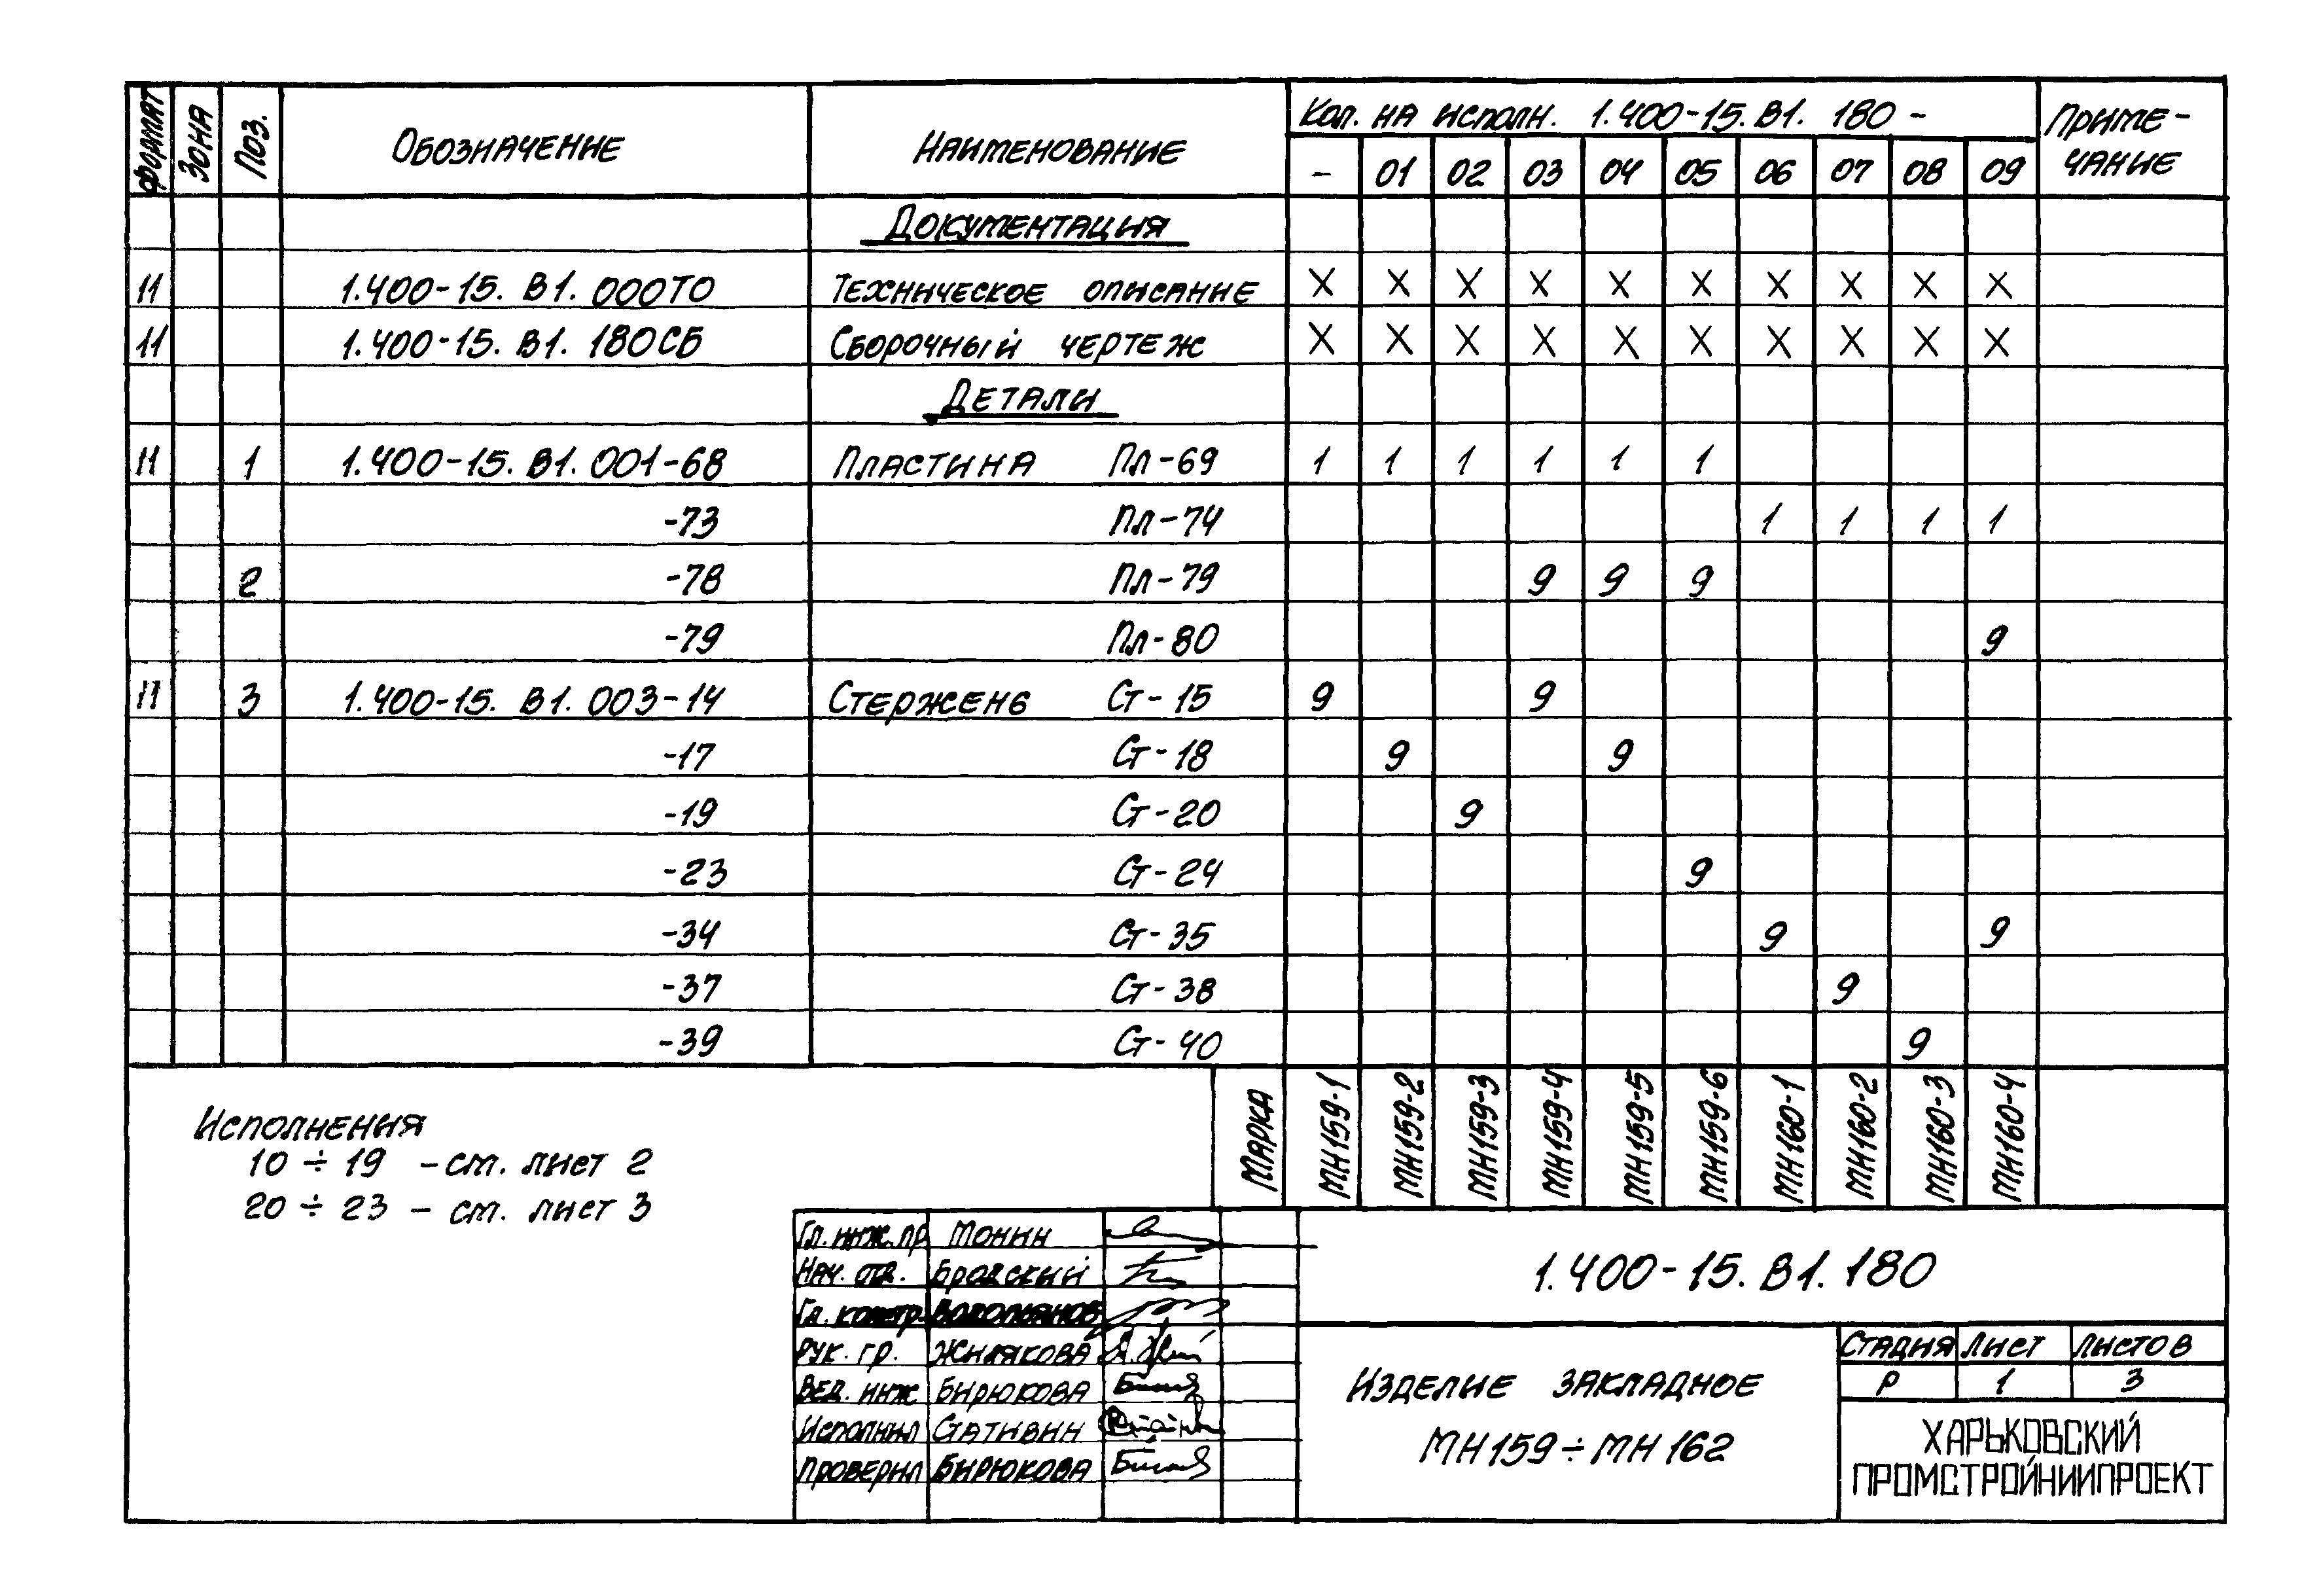 Формат Зона Поз. Обозначение Наименование Кол. на исполн. 1.400-15.В1. 180 - Приме-
чание
- 01 02 03 04 05 06 07 08 09
Документация
11 1.400-15. В1. 000ТО Техническое описание X X X X X X X X X X
11 1.400-15. В1. 180СБ Сборочный чертеж X X X X X X X X X X
Детали
11 1 1.400-15. В1. 001-68 Пластина Пл-69 1 1 1 1 1 1
-73 Пл-74 1 1 1 1
2 -78 Пл-79 9 9 9
-79 Пл-80 9
11 3 1.400-15. В1. 003-14 Стержень Ст-15 9 9
-17 Ст-18 9 9
-19 Ст-20 9
-23 Ст-24 9
-34 Ст-35 9 9
-37 Ст-38 9
-39 Ст-40 9
Марка МН159-1 МН159-2 МН159-3 МН159-4 МН159-5 МН159-6 МН160-1 МН160-2 МН160-3 МН160-4
Исполнения
10 ÷ 19 - см. лист 2
20 ÷ 23 - см. лист 3
Гл. инж. пр Монин
Нач. отд. Бродский
Гл. констр.
Рук. гр. Жилякова
Вед. инж Бирюкова
Исполнил Сативин
Проверил Бирюкова
1.400-15. В1. 180
Изделие закладное
МН159÷МН162
Стадия Лист Листов
Р 1 3
ХАРЬКОВСКИЙ
ПРОМСТРОЙНИИПРОЕКТ